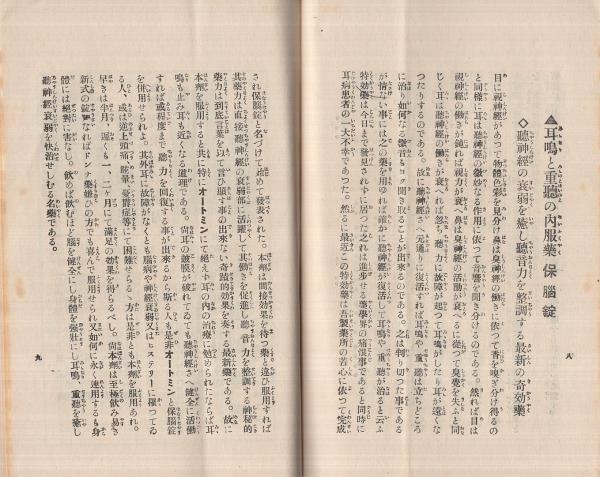 八
▲耳鳴と重聽の內服藥 保腦錠
◇聽神經の衰弱を癒し聽音力を整調する最新の奇効藥
目に視神經があつて物體色彩を見分け鼻は臭神經の働きに依つて香を嗅ぎ分け得るの
と同樣に耳は聽神經の微妙なる作用に依つて音響を聞き分けるのである。然れば目は
視神經の働きが鈍れば視力が衰へ鼻は臭神經の活動が衰へるに從つて臭覺を失ふと同
じく耳は聽神經の働きが衰へれば忽ち聽力に故障が起つて耳鳴がしたり耳が遠くな
つたりするのである。故に聽神經さへ元通りに復活すれば耳鳴や重聽は立ちどころ
に治り如何なる微音も聞き取ることが出來るのである。之は判り切つた事である
が情ない事には之の藥を用ゆれば確かに聽神經が復活して耳鳴や重聽が治ると云ふ
特効藥は今日まで發見されずに居つた之れは進步せる藥學界の痛恨事であると同時に
耳病患者の一大不幸であつた。然るに最近この特効藥は吾製藥所の苦心に依つて完成
され保腦錠と名づけて始めて發表された。本劑は間接効果を待つ藥と違ひ服用すれば
其藥力は直接聽神經の衰弱部に活躍して其働きを促進し聽音力を整調する神秘的
藥力は到底言葉を以て言ひ顯す事の出來ない奇蹟的効果を奏する最新藥である。故に
本劑を服用すると共に特にオートミンにて絕えず耳の內の治療に勉められたならば耳
鳴も止み耳も近くなる道理である。尙耳の鼓膜が破れてゐても聽神經さへ健全に活動
すれば或程度まで聽力を回復する事が出來るから斯る人も是非オートミンと保腦錠
を併用せられよ。其外耳に故障がなくとも腦病や神經衰弱又はヒステリーに罹つてゐ
る人、或は逆上頭痛、眩暈、憂鬱症等にて困難せらるゝ方は是非とも本劑を服用あれ。
早きは半月、遲くも一、二ヶ月にて滿足の効果を得らるべし。尙本劑は至極飮み易き
新式の錠劑なればドンナ藥嫌ひの方でも喜んで服用せられ又如何に永く連用するも身
體には絕對に害なし。飮めば飮むほど腦を健全にし身體を强壯にし耳鳴、重聽を癒し
聽神經衰弱を快治せしむる名藥である。
九